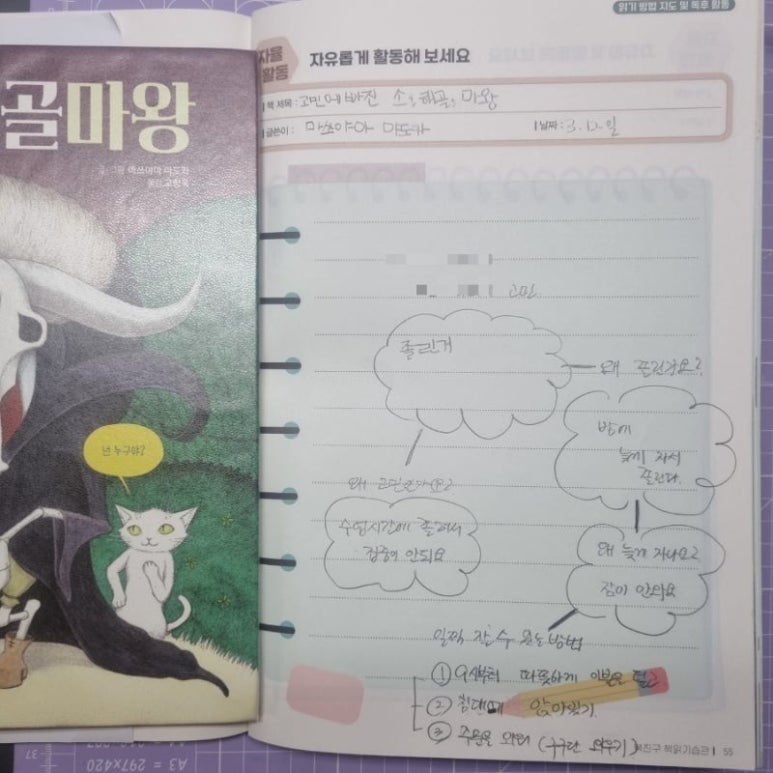 골마왕
글·그림 마쓰야마 마도카
넌 누구야?
읽기 방법 지도 및 독후 활동
자율
활동
자유롭게 활동해 보세요
책 제목: 고민에 빠진 소, 해골, 마왕
글쓴이: 마쓰야아 마도카
날짜: 3. 12. 일
고민
졸린거
왜 졸린걸까요?
밤에
늦게 자서
졸린다.
왜 고민인가요?
수업시간에 졸려서
집중이 안되요
왜 늦게 자나요?
잠이 안와요
일찍 잘 수 있는 방법
① 9시부터 따뜻하게 이불을 덮고
② 침대에 앉아있기
③ 주문을 외워 (구구단 외우기)
책읽기습관 | 55
37
A3 = 297x420